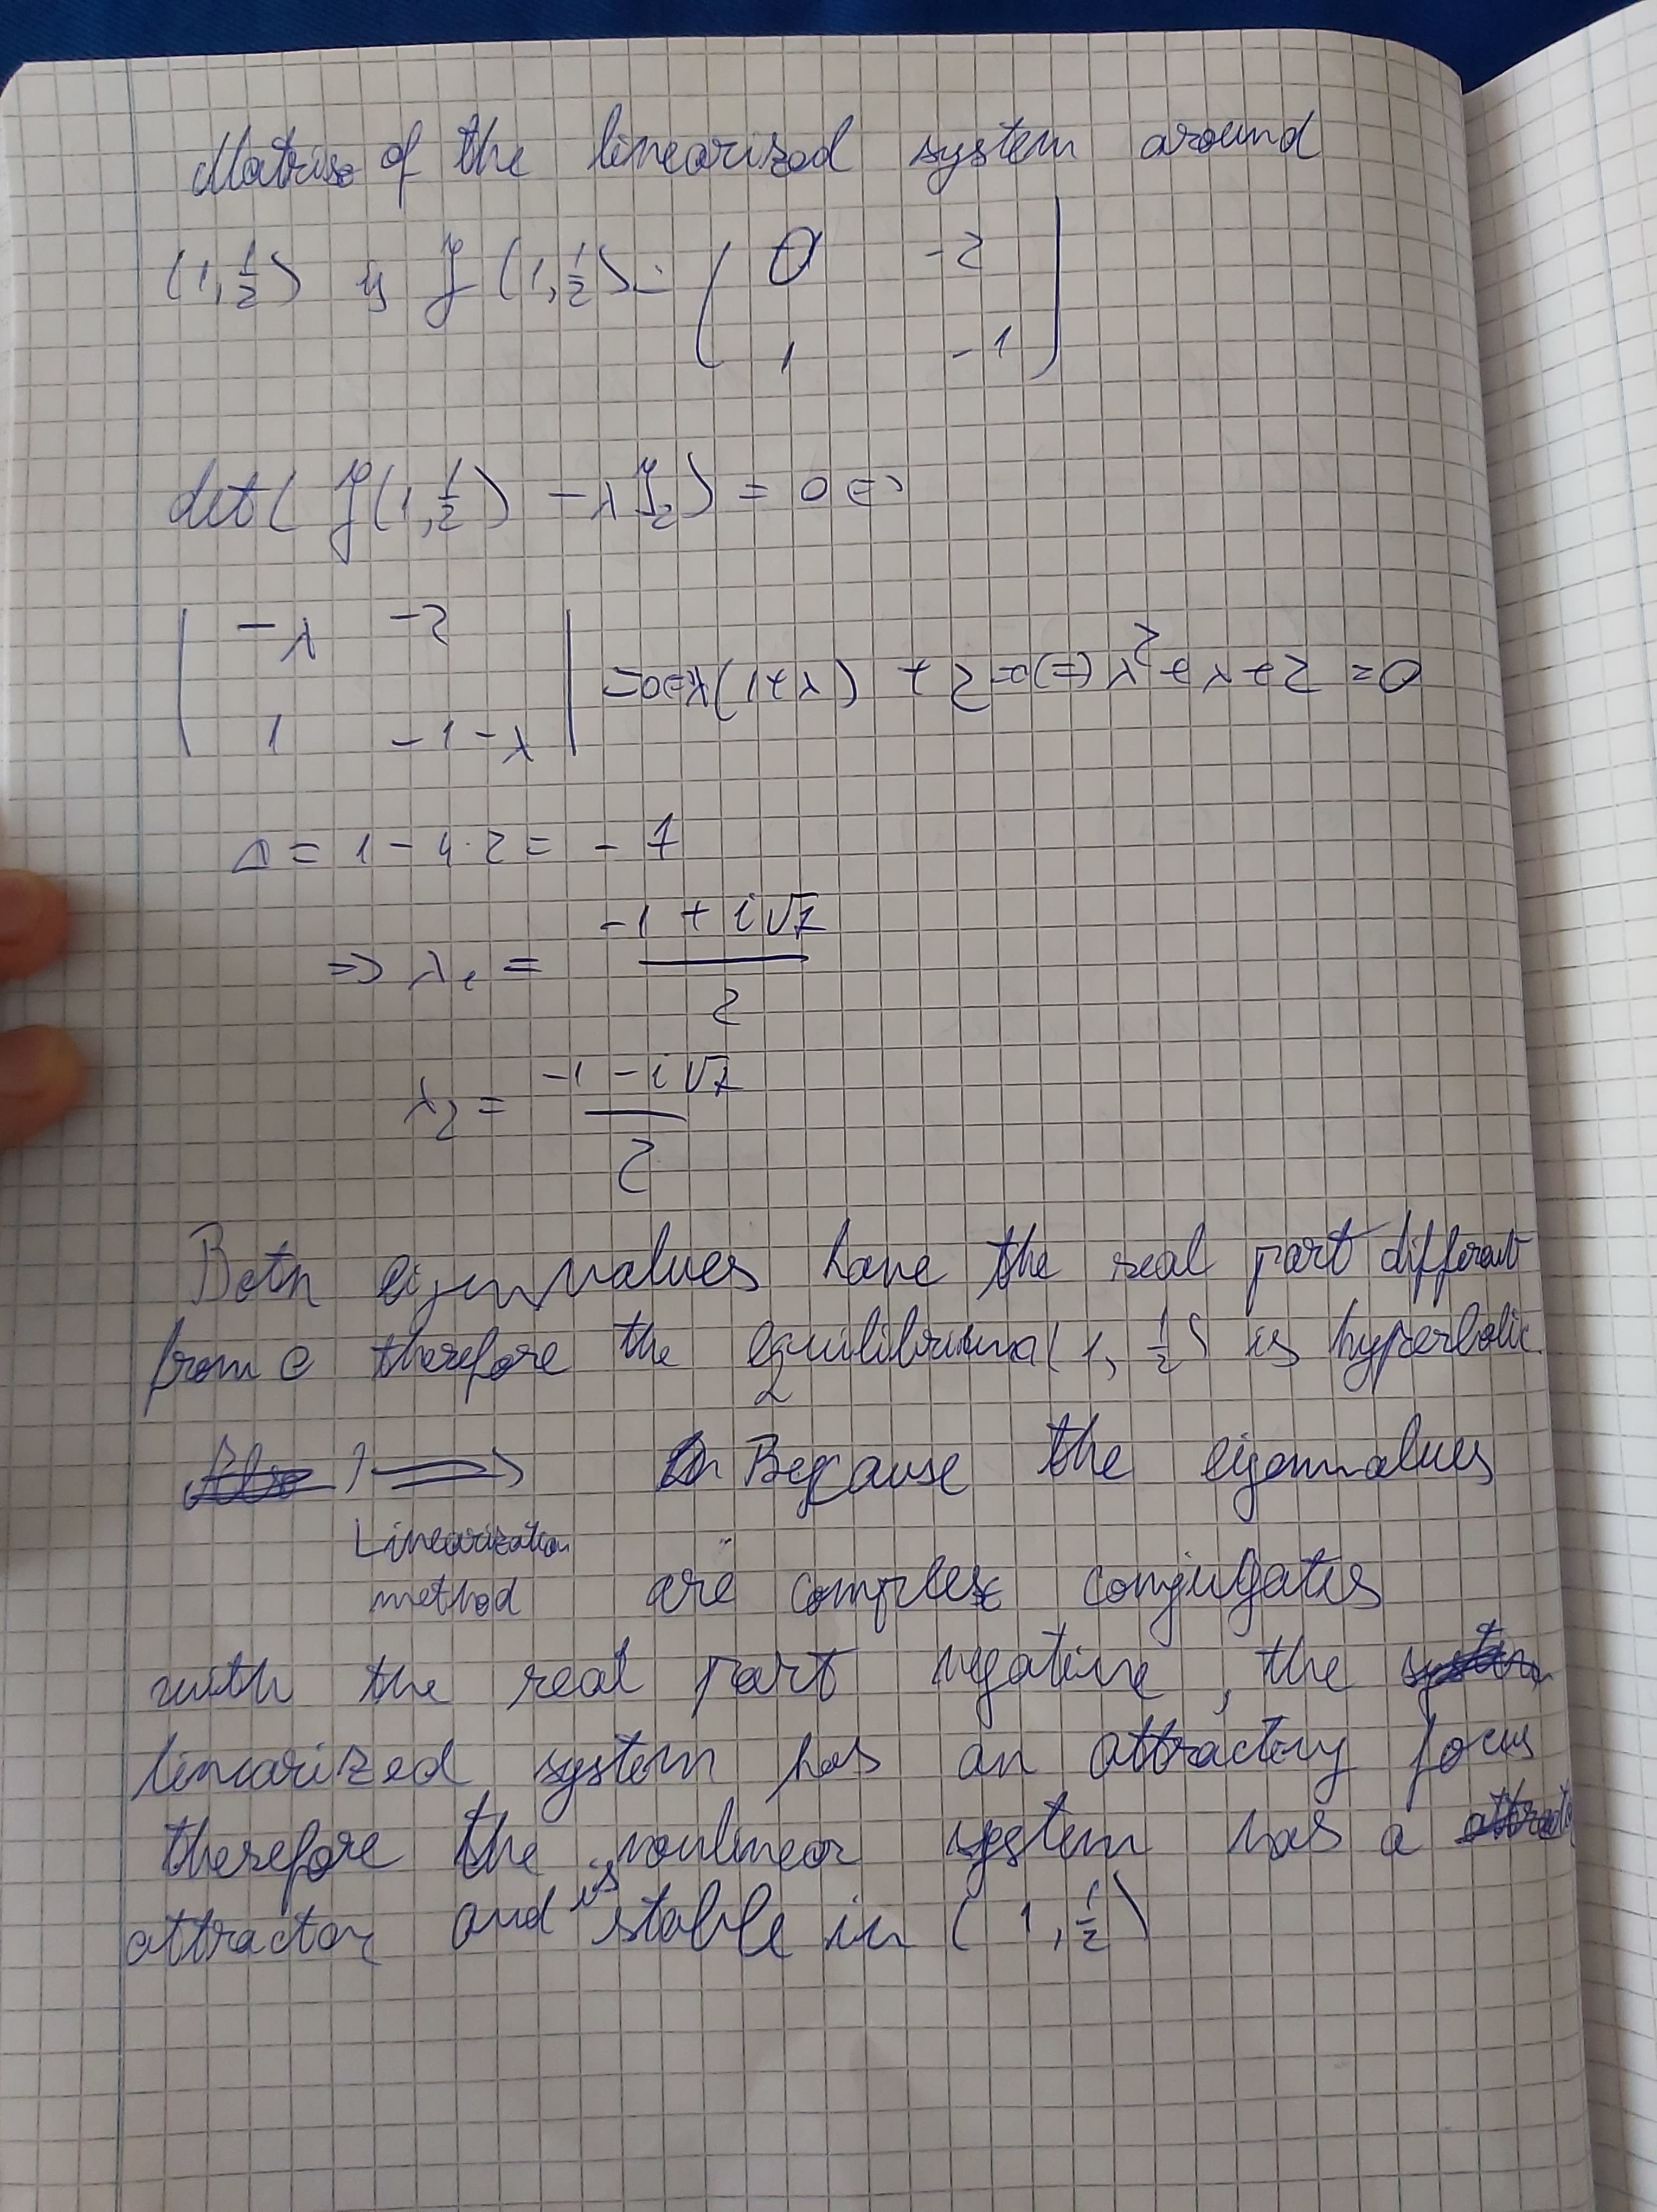 Matrix of the linearized system around
(1, 1/2) is J (1, 1/2) = ( 0 -2
1 -1 )
det( J(1, 1/2) - λ J2 ) = 0 <=>
| -λ -2
1 -1-λ | = 0 <=> λ(λ+1) + 2 = 0 <=> λ² + λ + 2 = 0
Δ = 1 - 4·2 = -7
=> λ1 = (-1 + i√7) / 2
λ2 = (-1 - i√7) / 2
Both eigenvalues have the real part different
from 0 therefore the equilibrium (1, 1/2) is hyperbolic.
=> Because the eigenvalues
Linearization
method are complex conjugates
with the real part negative, the
linearized system has an attractory focus
therefore the nonlinear system has a
attractor and is stable in (1, 1/2)